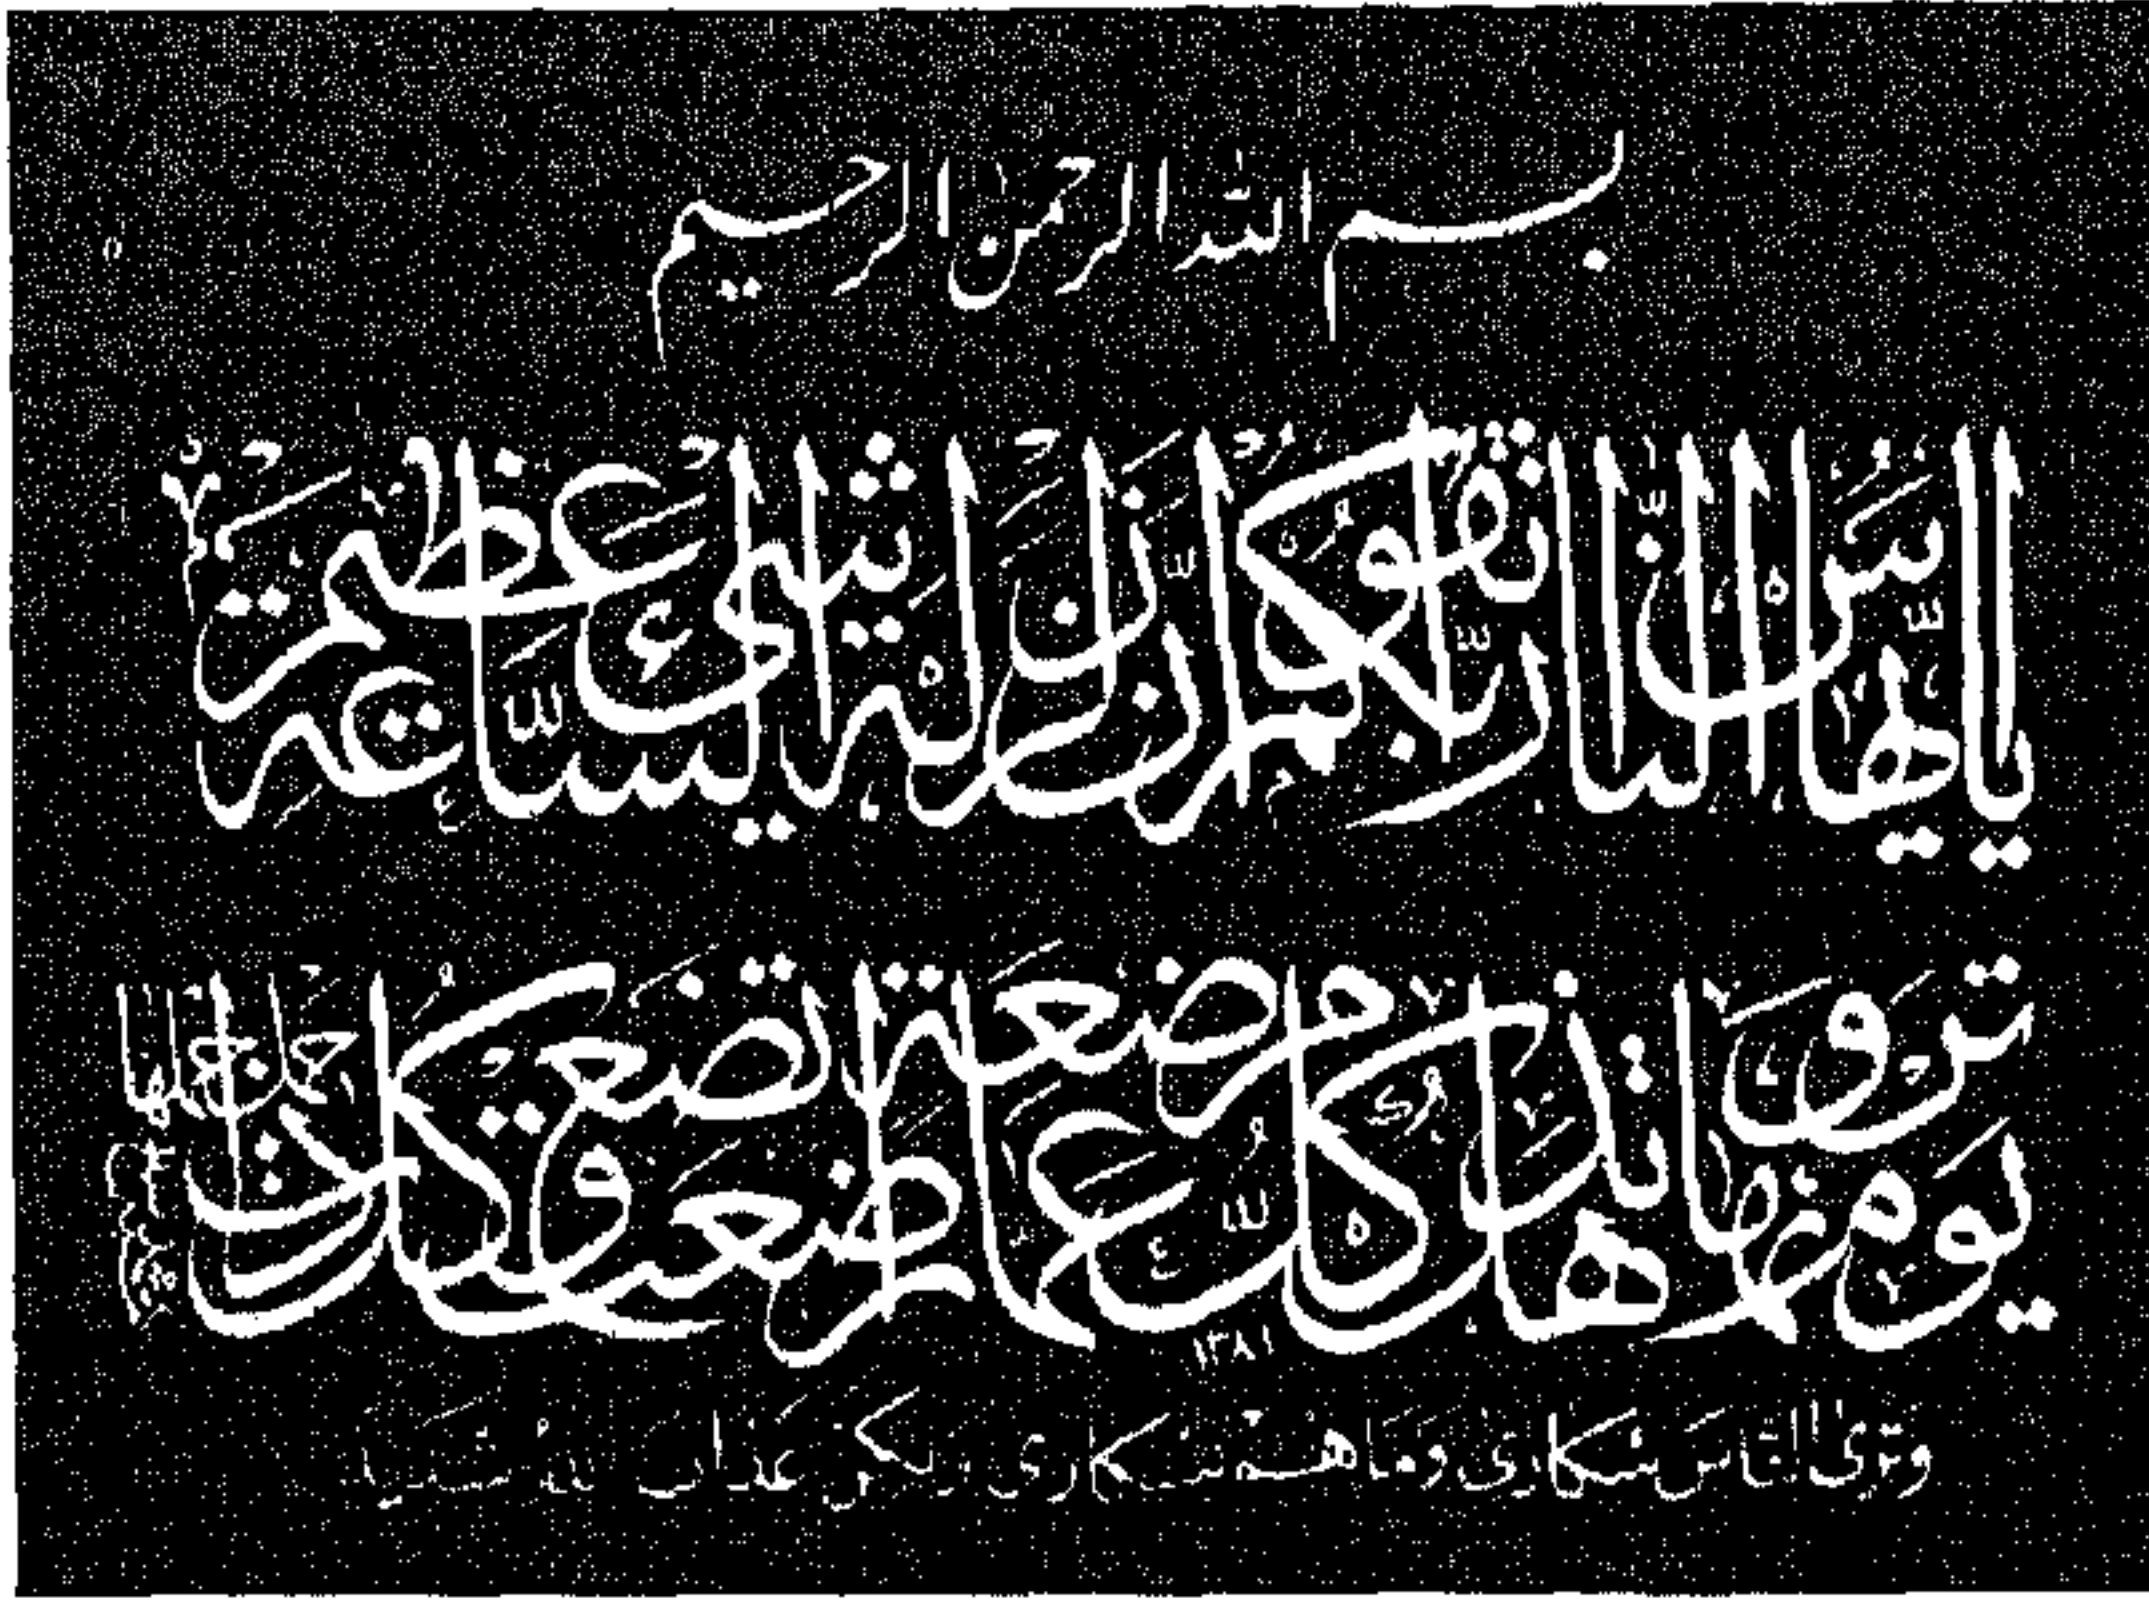 بسم الله الرحمن الرحيم
يا ايها الناس اتقوا ربكم ان زلزلة الساعة شيء عظيم
يوم ترونها تذهل كل مرضعة عما ارضعت وتضع كل ذات حمل حملها
١٣٨١
وترى الناس سكارى وما هم بسكارى ولكن عذاب الله شديد